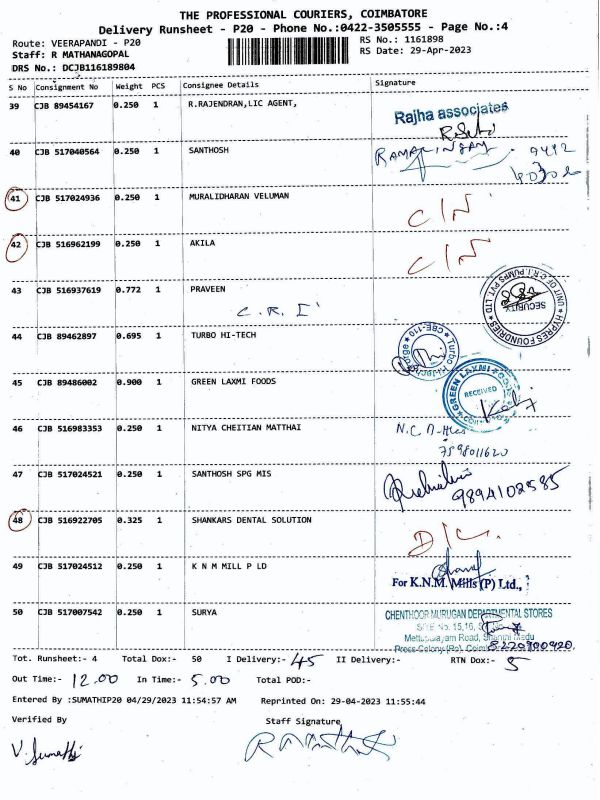 THE PROFESSIONAL COURIERS, COIMBATORE
Delivery Runsheet - P20 - Phone No.:0422-3505555 - Page No.:4
Route: VEERAPANDI - P20 RS No.: 1161898
Staff: R MATHANAGOPAL RS Date: 29-Apr-2023
DRS No.: DCJB116189804
S No Consignment No Weight PCS Consignee Details Signature
39 CJB 89454167 0.250 1 R.RAJENDRAN,LIC AGENT,
Rajha associates
40 CJB 517040564 0.250 1 SANTHOSH RAMALINGAM
41 CJB 517024936 0.250 1 MURALIDHARAN VELUMAN C/N
42 CJB 516962199 0.250 1 AKILA C/N
43 CJB 516937619 0.772 1 PRAVEEN
C.R.I
UNIT OF C.R.I. PUMPS PVT. LTD HYPRES FOUNDRIES SECURITY
44 CJB 89462897 0.695 1 TURBO HI-TECH
CBE-110
45 CJB 89486002 0.900 1 GREEN LAXMI FOODS
GREEN LAXMI RECEIVED
46 CJB 516983353 0.250 1 NITYA CHEITIAN MATTHAI
7598011620
47 CJB 517024521 0.250 1 SANTHOSH SPG MIS 9894102585
48 CJB 516922705 0.325 1 SHANKARS DENTAL SOLUTION D/C.
49 CJB 517024512 0.250 1 K N M MILL P LD
For K.N.M. Mills (P) Ltd.,
50 CJB 517007542 0.250 1 SURYA CHENTHOOR MURUGAN DEPARTMENTAL STORES
Tot. Runsheet:- 4 Total Dox:- 50 I Delivery:- 45 II Delivery:- RTN Dox:- 5
Out Time:- 12.00 In Time:- 5.00 Total POD:-
Entered By :SUMATHIP20 04/29/2023 11:54:57 AM Reprinted On: 29-04-2023 11:55:44
Verified By Staff Signature
V. Sumathi